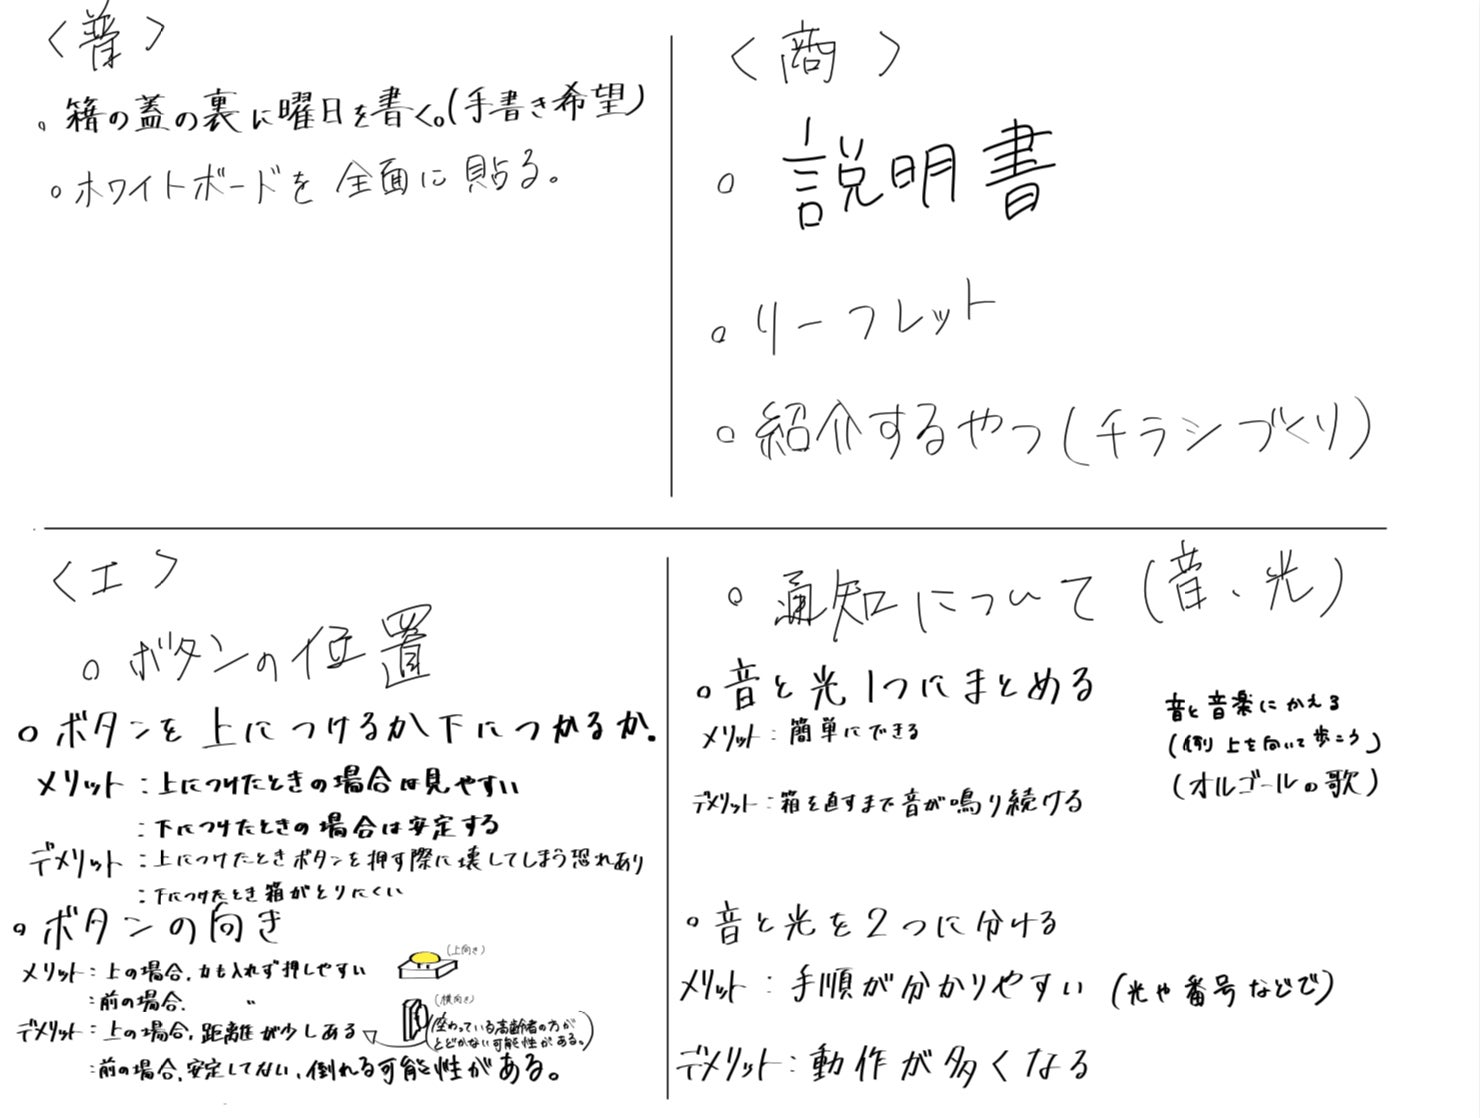 〈普〉
。箱の蓋の裏に曜日を書く。(手書き希望)
。ホワイトボードを全面に貼る。
〈商〉
。説明書
。リーフレット
。紹介するやつ(チラシづくり)
〈工〉
。ボタンの位置
。ボタンを上につけるか下につかるか.
メリット:上につけたときの場合は見やすい
:下につけたときの場合は安定する
デメリット:上につけたときボタンを押す際に壊してしまう恐れあり
:下につけたとき箱がとりにくい
。ボタンの向き
メリット:上の場合、力も入れず押しやすい
(上向き)
:前の場合、 〃
(横向き)
デメリット:上の場合、距離が少しある
(座わっている高齢者の方が
とどかない可能性がある。)
:前の場合、安定してない、倒れる可能性がある。
。通知について(音、光)
。音と光1つにまとめる
メリット:簡単にできる
デメリット:箱を直すまで音が鳴り続ける
音と音楽にかえる
(例 上を向いて歩こう)
(オルゴールの歌)
。音と光を2つに分ける
メリット:手順が分かりやすい(光や番号などで)
デメリット:動作が多くなる